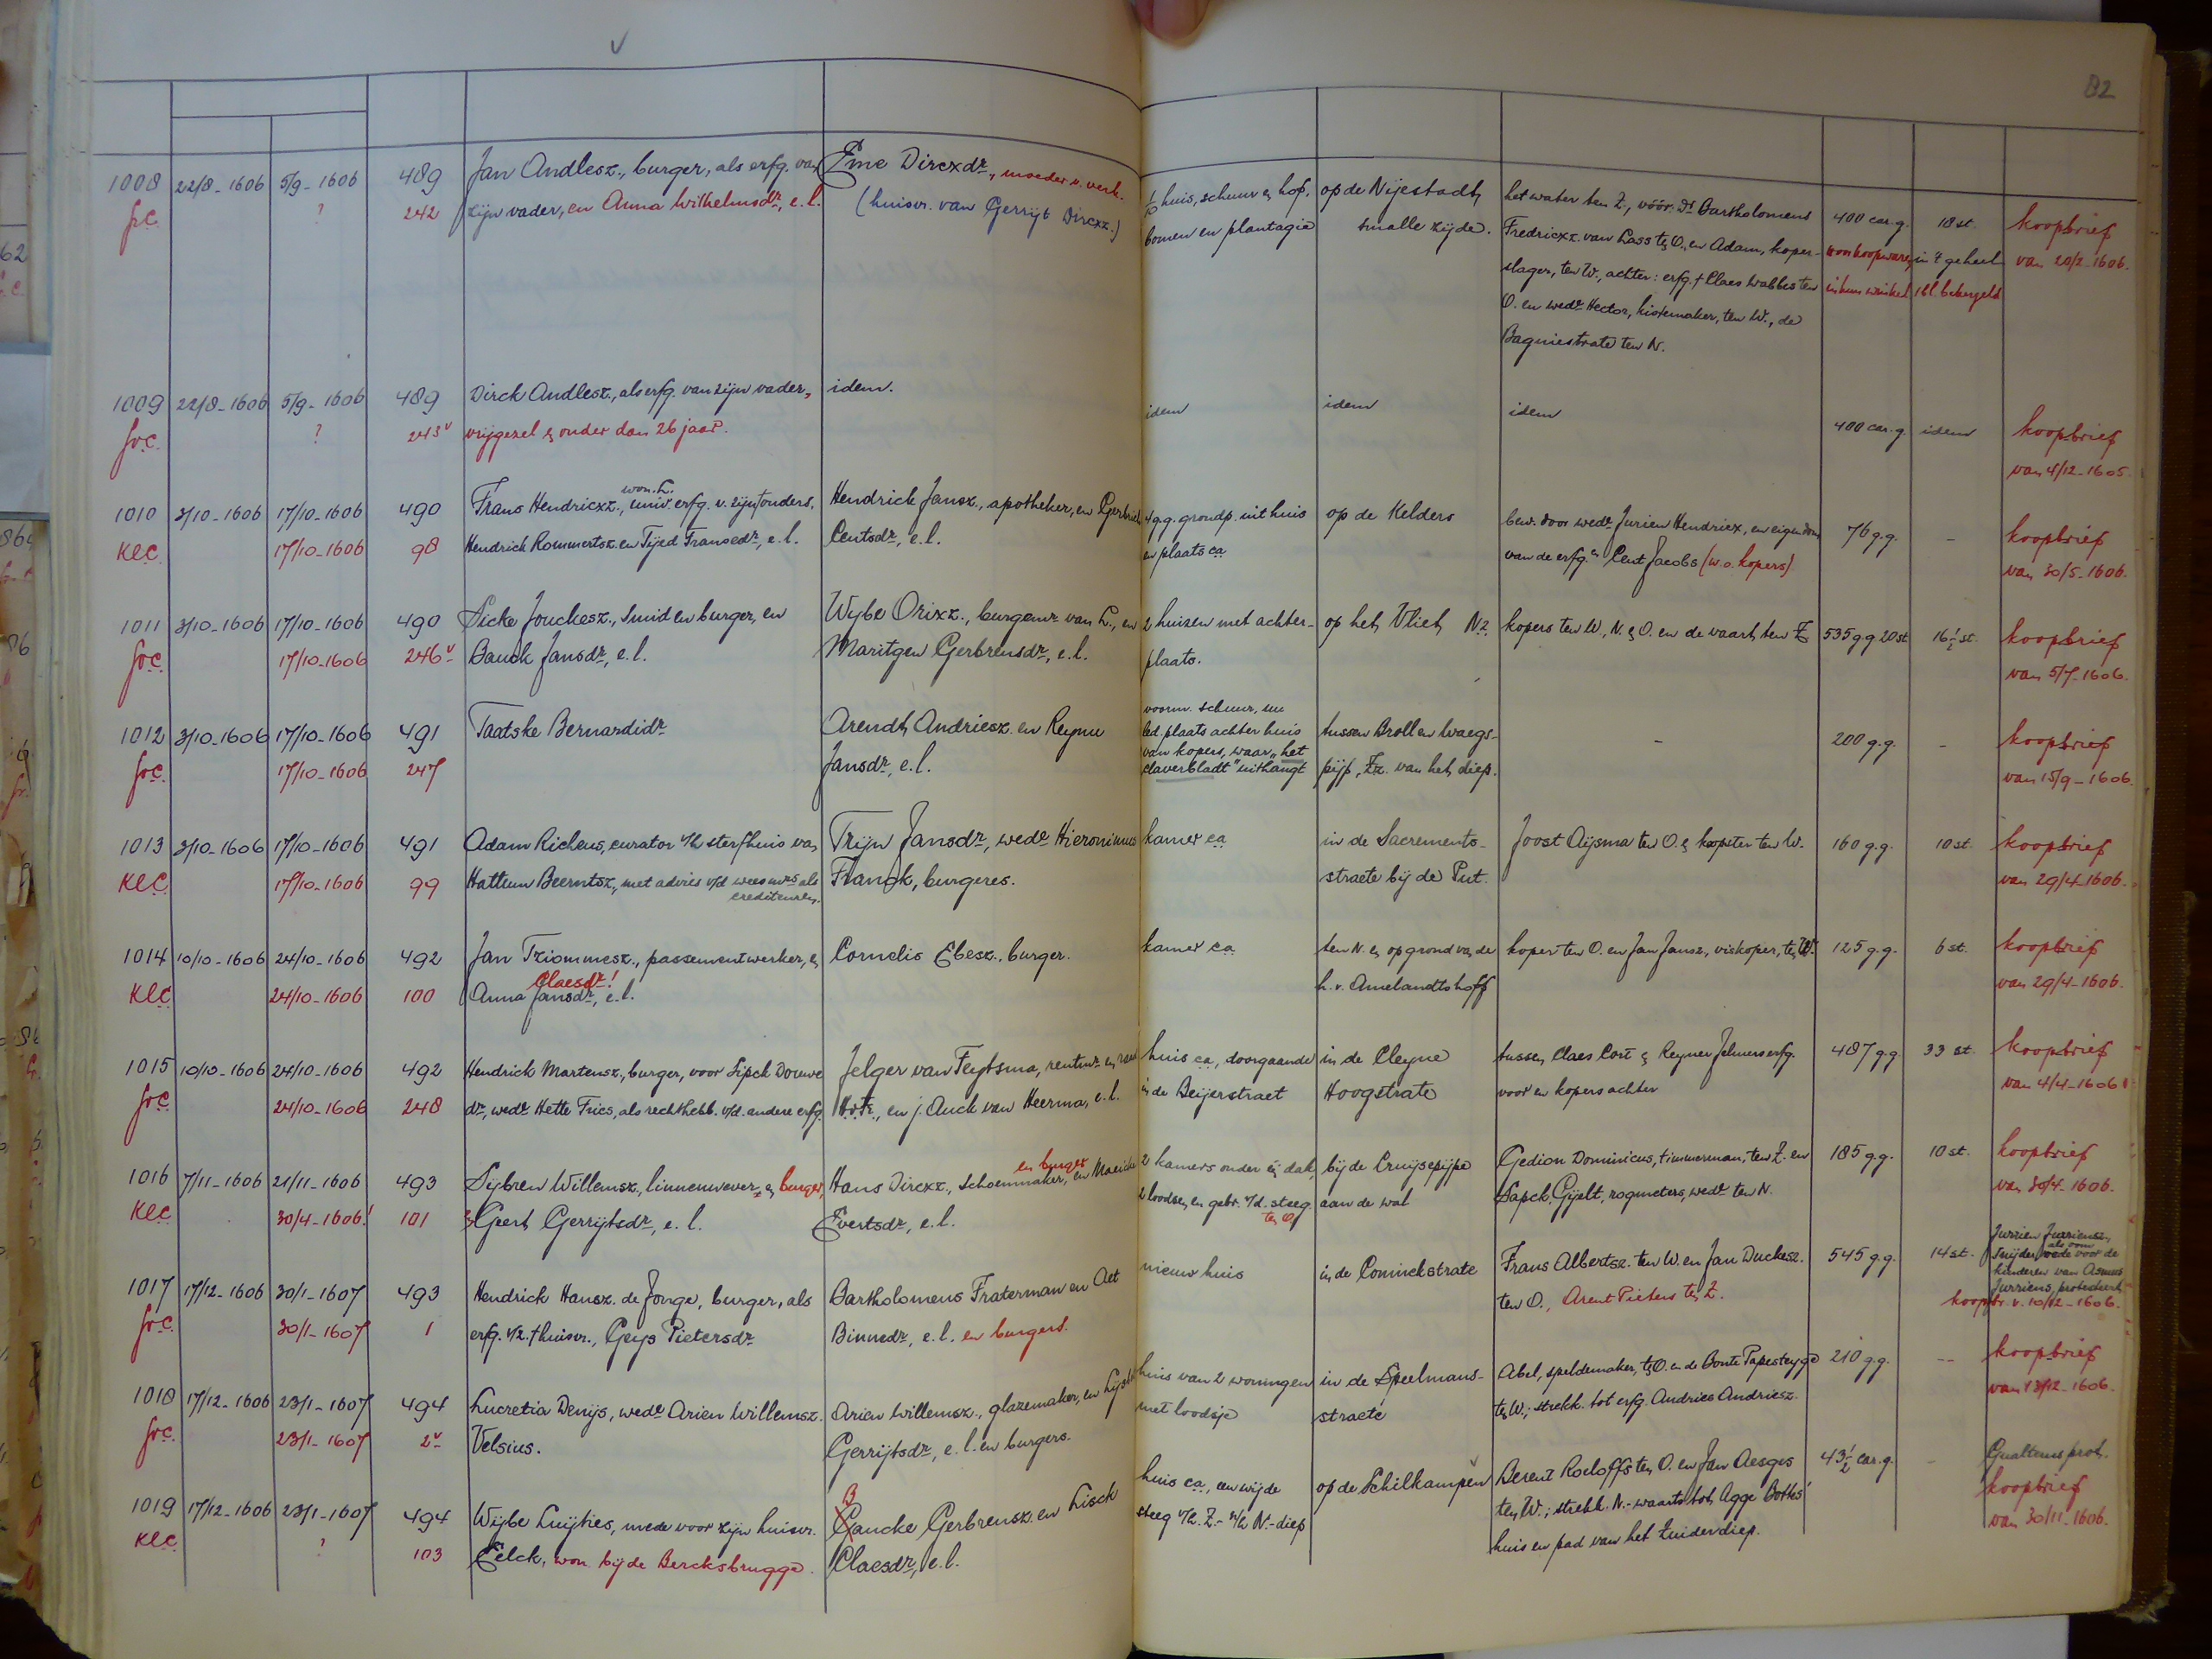 82
1008 22/8-1606 5/9-1606 489 Jan Andlesz., burger, als erfg. van Eme Dircxdr., moeder v. verk. 1/10 huis, schuur en hof, op de Nijestadt, het water ten Z., vóór: Ds Bartholomeus 400 car.g. 18 st. koopbrief
? 242 zijn vader, en Anna Wilhelmsdr., e.l. (huisvr. van Gerrijt Dircxz.) bomen en plantagie smalle zijde. Fredricxz. van Lass ten O. en Adam, koper- voor koopwaren in 't geheel van 20/2-1606.
slager, ten W., achter: erfg. † Claes Wabbes ten in hun winkel
O. en wede Hector, kistemaker, ten W., de
Bagniestrate ten N.
1009 22/8-1606 5/9-1606 489 Dirck Andlesz., als erfg. van zijn vader, idem. idem idem idem 400 car.g. idem koopbrief
? 243v vrijgezel en ouder dan 26 jaar. van 4/12-1605.
won. L.
1010 3/10-1606 17/10-1606 490 Frans Hendricxz., univ. erfg. v. zijn ouders, Hendrick Jansz., apotheker, en Gerbrich 4 g.g. grondp. uit huis op de Kelders bew. door wede Jurien Hendricx, en eigendom 76 g.g. - koopbrief
KLC 17/10-1606 98 Hendrick Rommertsz. en Tijed Fransedr., e.l. Centsdr., e.l. en plaats ca van de erfg.n Cent Jacobs (w.o. kopers) van 30/5-1606.
1011 3/10-1606 17/10-1606 490 Sicke Jouckesz., smid en burger, en Wijbe Orixz., burgemr van L., en 2 huizen met achter- op het Vliet Nz. kopers ten W., N. & O. en de vaart ten Z. 535 g.g 20 st 16 1/2 st. koopbrief
17/10-1606 246v Bauck Jansdr., e.l. Maritgen Gerbrensdr., e.l. plaats. van 5/7-1606.
voorm. schuur, nu
1012 3/10-1606 17/10-1606 491 Taatske Bernardidr. Arendt Andriesz. en Reynu led. plaats achter huis tussen Brol en Waegs- - 200 g.g. - koopbrief
van kopers, waar "het
17/10-1606 247 Jansdr., e.l. claverbladt" uithangt pijp, Zz. van het diep. van 15/9-1606.
1013 3/10-1606 17/10-1606 491 Adam Richeus, curator v/h sterfhuis van Trijn Jansdr., wede Hieronimus kamer ca in de Sacraments- Joost Aijsma ten O. & koopster ten W. 160 g.g. 10 st. koopbrief
KLC 17/10-1606 99 Hattum Beerntsz., met advies v/d weesmrs als Franck, burgeres. straete bij de Put. van 29/4-1606.
crediteuren.
1014 10/10-1606 24/10-1606 492 Jan Tziommesz., passementwerker, en Cornelis Ebesz., burger. kamer ca ten N. en op grond van de koper ten O. en Jan Jansz., viskoper, ten W. 125 g.g. 6 st. koopbrief
Claesdr!
KLC 24/10-1606 100 Anna Jansdr., e.l. h. v. Amelandtshoff van 29/4-1606.
1015 10/10-1606 24/10-1606 492 Hendrick Martensz., burger, voor Sipck Douwe Jelger van Feytsma, rentmr en huis ca, doorgaande in de Cleyne tussen Claes Cort & Reyner Jelmers erfg. 487 g.g 33 st. koopbrief
24/10-1606 248 dr., wede Hette Fries, als rechthebb. v/d. andere erfg. en j. Auck van Heerma, e.l. in de Beijerstraet Hoogstrate voor en kopers achter van 4/4-1606
en burger
1016 7/11-1606 21/11-1606 493 Sijbren Willemsz., linnenwever, en burger, Hans Dircxz., schoenmaker, en Maeicke 2 kamers onder één dak, bij de Cruijsepijpe Gedion Dominicus, timmerman, ten Z. en 185 g.g. 10 st. koopbrief
KLC 30/4-1606! 101 Geert Gerrijtsdr., e.l. Evertsdr., e.l. 2 loodsen en gebr. v/d. steeg aan de wal Sapck Gijelt, rogmeters, wede ten N. van 30/4-1606.
ten O.
Jurrien Jurriensz.,
als oom
1017 17/12-1606 30/1-1607 493 Hendrick Hansz. de Jonge, burger, als Bartholomeus Fraterman en Aet nieuw huis in de Coninckstrate Frans Albertsz. ten W. en Jan Duckesz. 545 g.g. 14 st. snijder, mede voor de
kinderen van Asmus
Jurriens, protesteert
30/1-1607 1 erfg. v/z. † huisvr., Geijs Pietersdr. Binnedr., e.l. en burgers. ten O., Arent Pieters ten Z. koopbr. v. 10/12-1606.
1018 17/12-1606 23/1-1607 494 Lucretia Denijs, wede Arien Willemsz. Arien Willemsz., glazemaker, en Lijsbet huis van 2 woningen in de Speelmans- Abel, speldemaker, ten O. en de Bonte Papesteyge 210 g.g. - koopbrief
23/1-1607 2v Velsius. Gerrijtsdr., e.l. en burgers. met loodsje straete ten W.; strekk. tot erfg. Andries Andriesz. van 13/12-1606.
B
1019 17/12-1606 23/1-1607 494 Wijbe Luijties, mede voor zijn huisvr. Gaucke Gerbrensz. en Lisck huis ca, een wijde op de Schilkampen Berent Roeloffs ten O. en Jan Aesges 43 1/2 car.g. - Gualterus prot.
KLC ? 103 Eelck, won. bij de Bercksbrugge. Claesdr., e.l. steeg v/h. Z.- n/h N.-diep ten W.; strekk. N.-waarts tot Agge Bottes' koopbrief
huis en pad van het Zuiderdiep. van 30/11-1606.